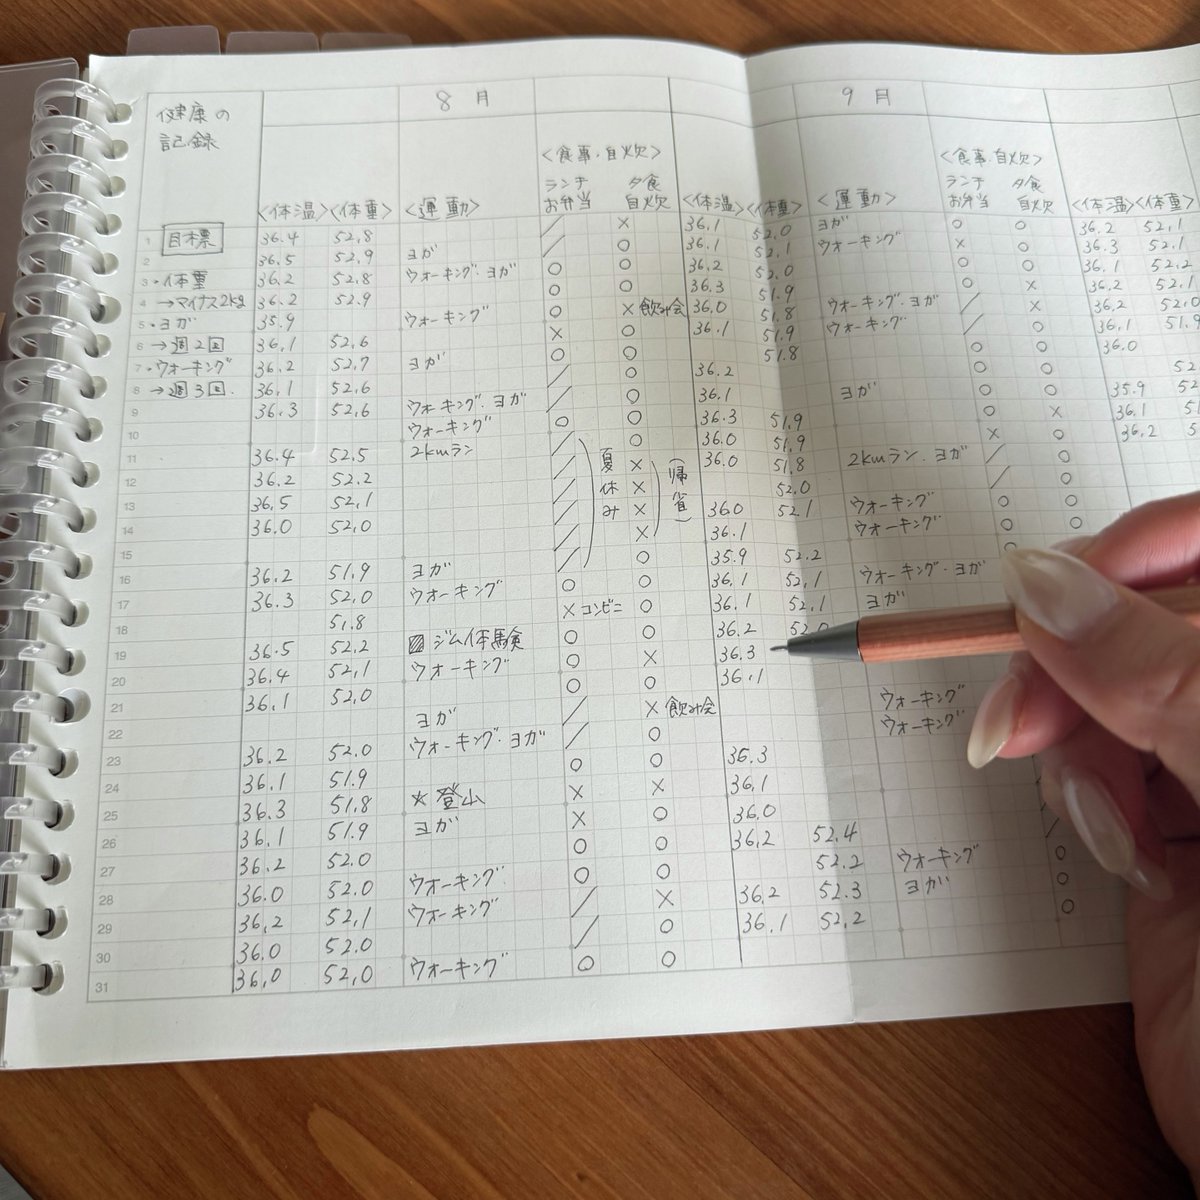 健康の 8月 9月
記録
<食事・自炊> <食事・自炊>
<体温> <体重> <運動> ランチお弁当 夕食自炊 <体温> <体重> <運動> ランチお弁当 夕食自炊 <体温> <体重>
1 目標 36.4 52.8 / × 36.1 52.0 ヨガ ○ ○ 36.2 52.1
2 36.5 52.9 ヨガ / ○ 36.1 52.1 ウォーキング × ○ 36.3 52.1
3 ・体重 36.2 52.8 ウォーキング・ヨガ ○ ○ 36.2 52.0 ○ ○ 36.1 52.2
4 →マイナス2kg 36.2 52.9 ○ ○ 36.3 51.9 ○ × 36.2 52.1
5 ・ヨガ 35.9 ウォーキング ○ ×飲み会 36.0 51.8 ウォーキング・ヨガ / ○ 36.2 52.0
6 →週2回 36.1 52.6 × ○ 36.1 51.9 ウォーキング / ○ 36.1 51.9
7 ・ウォーキング 36.2 52.7 ヨガ ○ ○ 51.8 ○ ○ 36.0
8 →週3回. 36.1 52.6 / ○ 36.2 ○ ○
9 36.3 52.6 ウォーキング・ヨガ / ○ 36.1 ヨガ ○ ○ 35.9
10 ウォーキング ○ ○ 36.3 51.9 ○ × 36.1
11 36.4 52.5 2kmラン / 夏休み ○ 36.0 51.9 × ○ 36.2
12 36.2 52.2 / × (帰省) 36.0 51.8 2kmラン・ヨガ / ○
13 36.5 52.1 / × 52.0 / ○
14 36.0 52.0 / × 36.0 52.1 ウォーキング ○ ○
15 / × 36.1 ウォーキング ○ ○
16 36.2 51.9 ヨガ / ○ 35.9 52.2 ○
17 36.3 52.0 ウォーキング ○ ○ 36.1 52.1 ウォーキング・ヨガ
18 51.8 ×コンビニ ○ 36.1 52.1 ヨガ
19 36.5 52.2 ジム体験 ○ ○ 36.2 52.0
20 36.4 52.1 ウォーキング ○ × 36.3
21 36.1 52.0 ○ ○ 36.1
22 ヨガ / ×飲み会 ウォーキング
23 36.2 52.0 ウォーキング・ヨガ / ○ ウォーキング
24 36.1 51.9 ○ ○ 36.3
25 36.3 51.8 ☆登山 × × 36.1
26 36.1 51.9 ヨガ × ○ 36.0 /
27 36.2 52.0 ○ ○ 36.2 52.4 /
28 36.0 52.0 ウォーキング ○ ○ 52.2 ウォーキング ○
29 36.2 52.1 ウォーキング / × 36.2 52.3 ヨガ ○
30 36.0 52.0 / ○ 36.1 52.2 ○
31 36.0 52.0 ウォーキング ○ ○